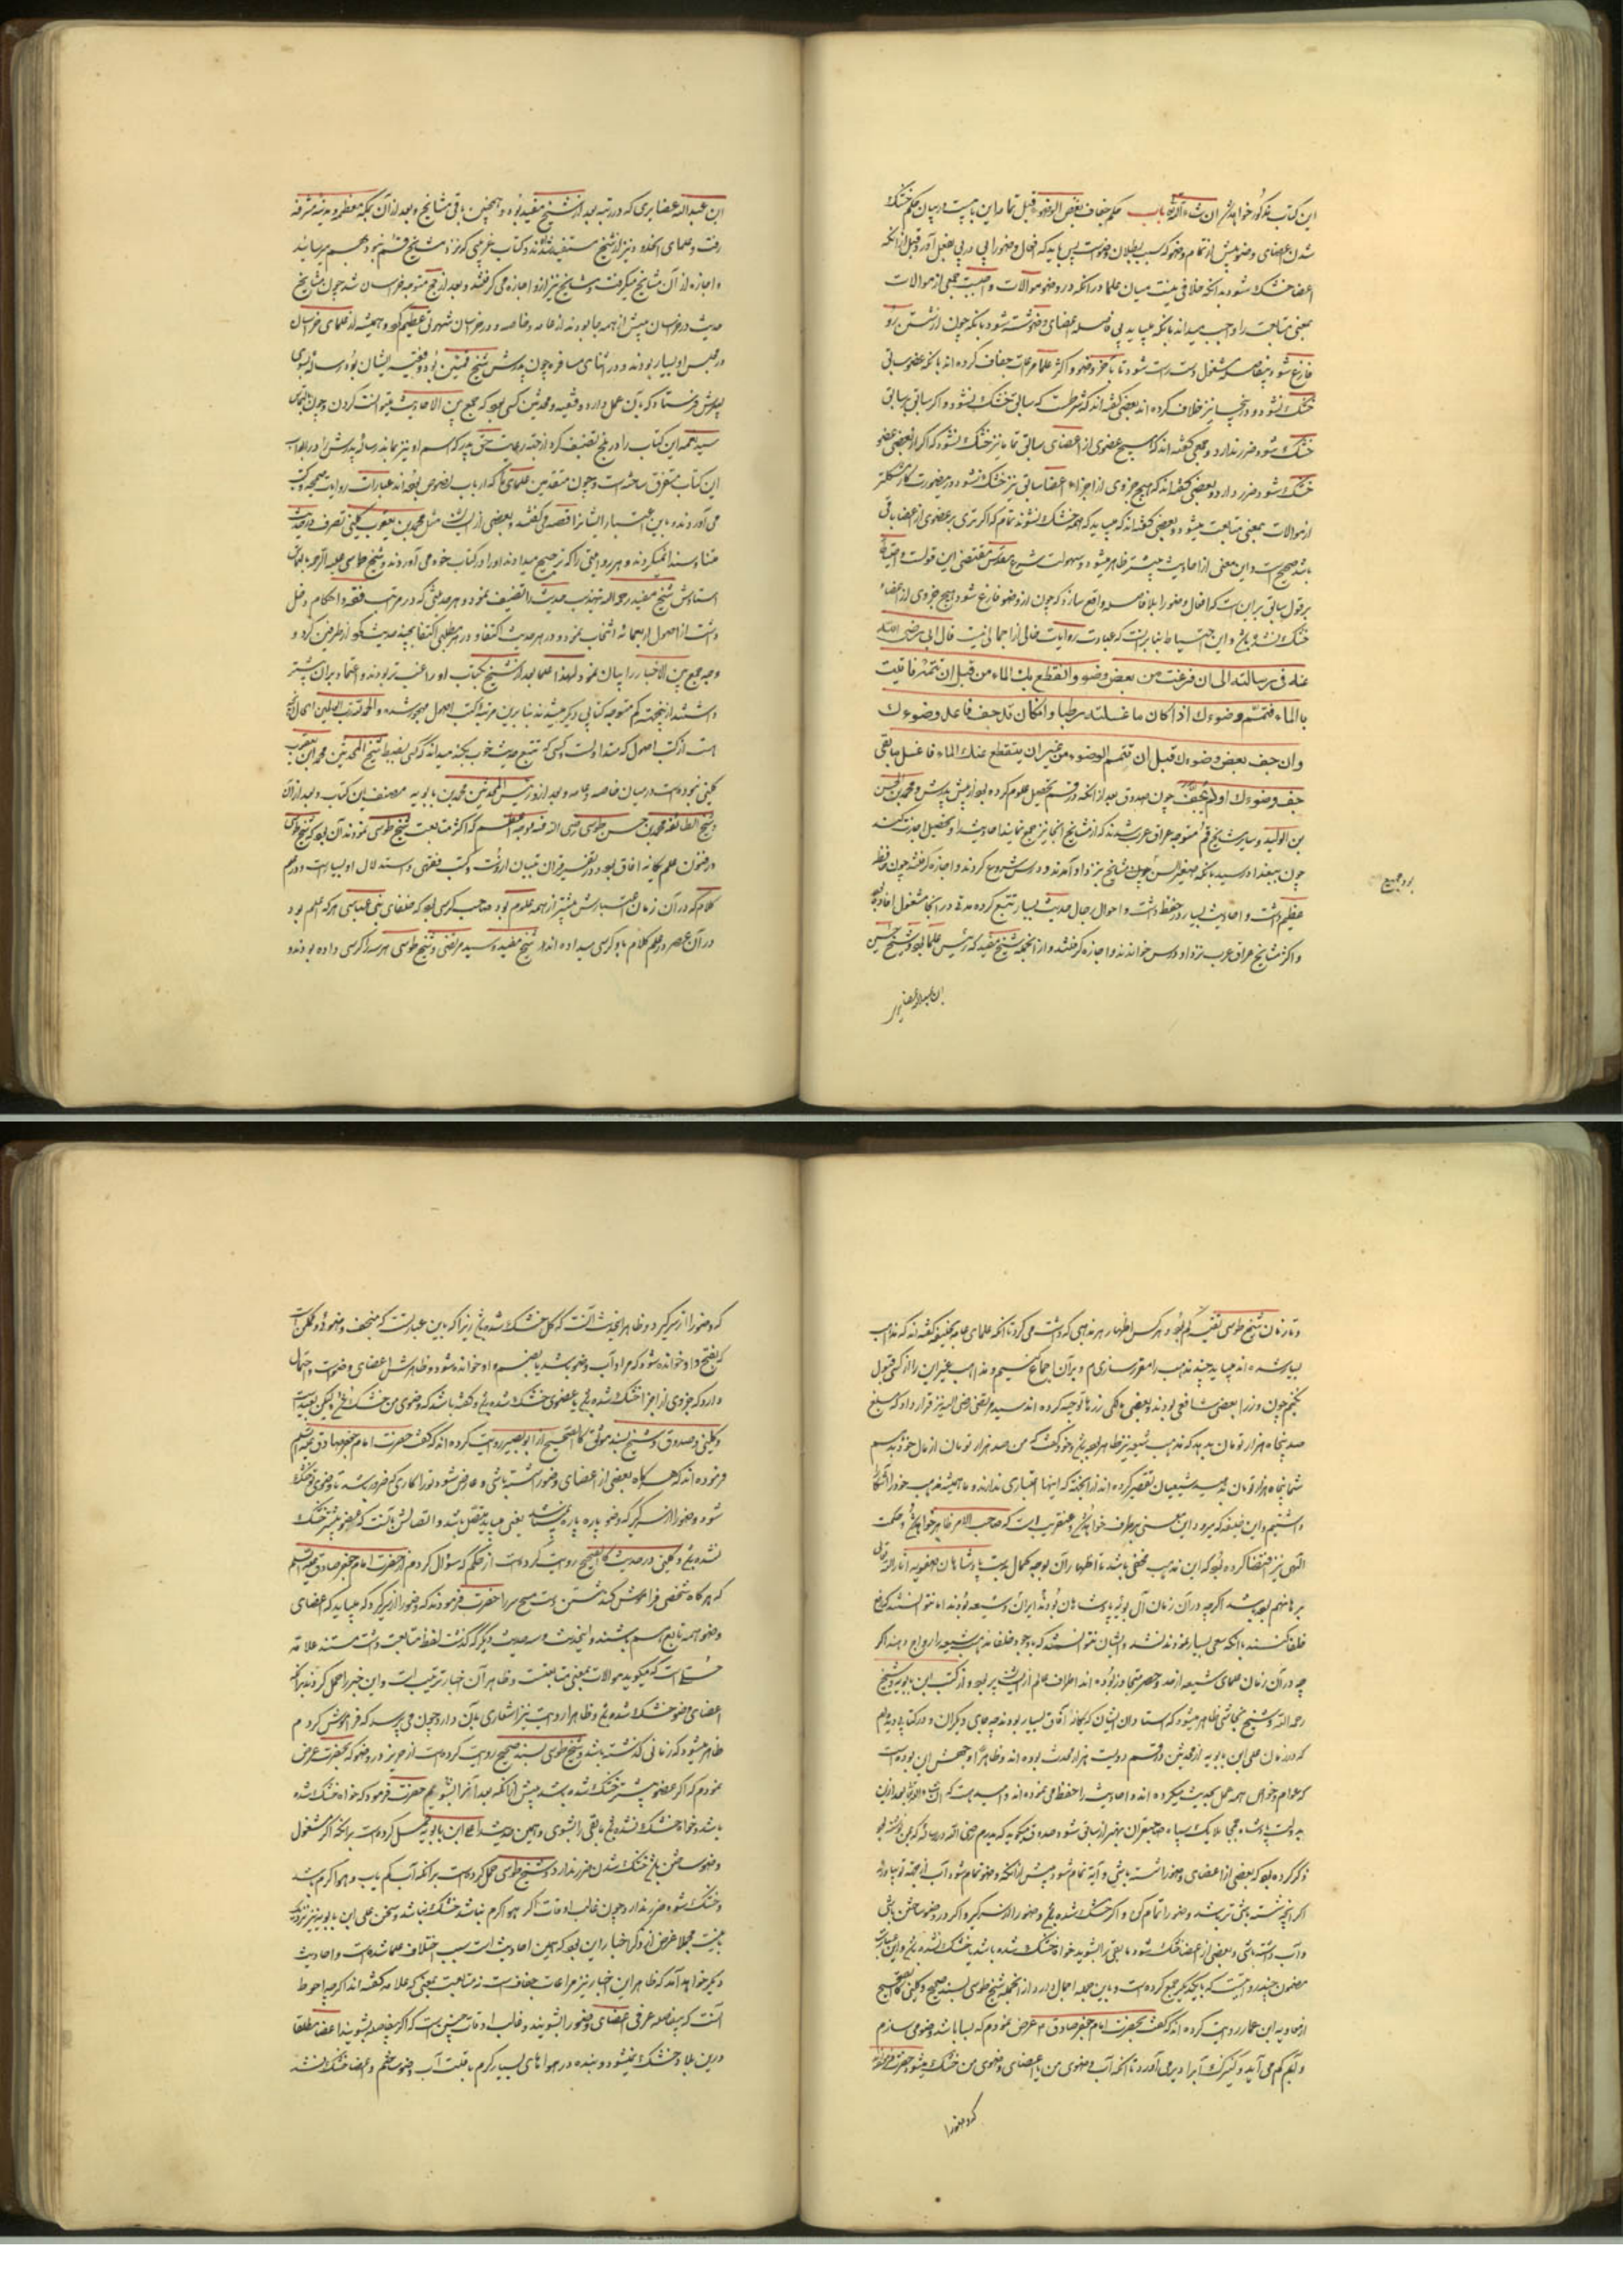 این کتاب مذکور خواهد شد ان شاء الله باب حکم جفاف بعض الوضوء قبل تمامه این بابیست در بیان حکم خشک
شدن اعضای وضو پیش از تمام وضو که سبب بطلان وضوست پس باید که افعال وضو را پی در پی بفعل آورد قبل از آنکه
اعضا خشک شود بدانکه خلافی نیست میان علما در آنکه در وضو موالات واجبست جمعی از موالات
بمعنی متابعت را واجب میدانند بآنکه میباید بی فاصله اعضای وضو شسته شود بآنکه چون از شستن رو
فارغ شود بیفاصله مشغول دست راست شود تا بآخر وضو و اکثر علما مراعات جفاف کرده اند بآنکه عضو سابق
خشک نشود و در اینجا نیز خلاف کرده اند بعضی گفته اند که شرطست که سابق خشک نشود و اگر سابق بر سابق
خشک شود ضرر ندارد و جمعی گفته اند که هیچ عضوی از اعضای سابق تمامًا نیز خشک نشود که اگر از بعضی عضو
خشک شود ضرر دارد و بعضی گفته اند که هیچ جزوی از اجزاء اعضا سابق نیز خشک نشود و در اینصورت کار مشکلتر
از موالات بمعنی متابعت میشود و بعضی گفته اند که میباید که همه خشک نشوند تمام که اگر تری بر عضوی از اعضا باقی
باشد صحیح است و این معنی از احادیث بیشتر ظاهر میشود و سهولت شرع مقدس مقتضی این قولست و احتیاط
بر قول سابق بر این است که افعال وضو را بلا فاصله واقع سازد که چون از وضو فارغ شود هیچ جزوی از اعضاء
خشک نشده باشد و این احتیاط بنا بر آنست که عبارت روایات خالی از اجمالی نیست قال ابی رضی الله
عنه فی رسالته الی ان فرغت من بعض وضوءك وانقطع بك الماء من قبل ان تتمه فاتیت
بالماء فتمم وضوءك اذا كان ما غسلته رطبا وان كان قد جف فاعد وضوءك
وان جف بعض وضوءك قبل ان تتم الوضوء من غیر ان ینقطع عنك الماء فاغسل ما بقی
جف وضوءك او لم یجف چون صدوق بعد از آنکه در قم تحصیل علوم کرده بود از پیش پدرش و محمد بن الحسن
بن الولید و سایر مشایخ قم متوجه عراق عرب شدند که از مشایخ آنجا نیز جمع نمایند احادیث را و تحصیل اجازت کنند
چون ببغداد رسید بآنکه صغیر السن بود مشایخ نزد او آمدند و درس شروع کردند و اجازه گرفتند چون حفظ
عظیم داشت و احادیث بسیار در حفظ داشت و احوال رجال حدیث بسیار تتبع کرده مدتی در آنجا مشغول افاده بود
و اکثر مشایخ عراق عرب نزد او درس خواندند و اجازه گرفتند و از آنجمله شیخ مفید که رئیس علما بود و شیخ حسین
ابن عبدالله غضایری
ابن عبدالله غضایری که در رتبه بعد از شیخ مفید بود و همچنین باقی مشایخ و بعد از آن بمکه معظمه و مدینه مشرفه
رفت و علمای آنحدود نیز از شیخ مستفید شدند و کتاب غریبی که نزد مشایخ قم نبود بهم میرسانید
و اجازه از آن مشایخ میگرفت و مشایخ نیز از او اجازه می گرفتند و بعد از حج متوجه خراسان شد چون مشایخ
حدیث در خراسان بیش از همه جا بودند از عامه و خاصه و در خراسان شهرتی عظیم کرد و همیشه از علمای خراسان
در مجلس او بسیار بودند و در اثنای مسافرت چون پدرش شیخ قمیین بود و فقیه ایشان بود رساله بسوی
پسرش فرستاد که بآن عمل دارد و فقیه و محدثین کسی بود که جمع بین الاحادیث میتوانست کردن و چون بالتماس
سید نعمه این کتاب را در بلخ تصنیف کرد از جهت رعایت حق پدر که اسم او نیز بماند رساله پدرش را در ابواب
این کتاب متفرق ساخته است و چون متقدمین علمای ما که ارباب نصوص بودند عبارات روایات صحیحه در کتب
می آوردند و باین اعتبار ایشانرا اقصه می گفتند و بعضی از ایشان مثل محمد بن یعقوب کلینی تصرف در حدیث
متنا و سندا نمیکردند و هر روایتی را که ترجیح میدادند او را در کتاب خود می آوردند و شیخ طوسی علیه الرحمه بالتماس
استادش شیخ مفید رحمه الله تهذیب حدیث را تصنیف نمود و هر حدیثی که در مراتب فقه و احکام دخل
داشت از اصول اربعمائه انتخاب نمود و در هر حدیث اکتفا و در هر مطلبی اکتفا بچند حدیث نکرد از طرفین کرد و
وجه جمع بین الاخبار را بیان نمود لهذا علما بعد از شیخ بکتاب او راغب تر بودند و اعتماد بر آن بیشتر
داشتند از اینجهت کم متوجه کتابی دیگر میشدند بنابرین مرتبه کتب اصول مهجور شده و الحمد لله رب العالمین الحال آنچه
هست از کتب اصول که متداولست و کسی که تتبع حدیث خوب بکند میداند که کسی بضبط شیخ المحدثین محمد بن یعقوب
کلینی نبوده است در میان خاصه و عامه و بعد از و رئیس المحدثین محمد بن بابویه مصنف این کتاب و بعد از آن
شیخ الطائفه محمد بن حسن طوسی رضی الله عنه و وجه اعظم که اکثر متابعت شیخ طوسی نمودند آن بود که شیخ طوسی
در فنون علم یگانه آفاق بود و در تفسیر قران تبیان ازوست و کتب فقهی و استدلال او بسیار است و در علم
کلام که در آن زمان اعتبارش بیشتر از همه علوم بود صاحب کرسی بود که خلفای بنی عباسی هر که اعلم بود
در آن عصر در علم کلام باو کرسی میداده اند و شیخ مفید و سید مرتضی و شیخ طوسی هر سه را کرسی داده بودند
و تا زمان شیخ طوسی تقیه کم بود و هر کس اظهار هر مذهبی که داشت می کرد تا آنکه علمای عامه بخلیفه گفته اند که مذاهب
بسیار شده اند میباید چند مذهب را مقرر سازی و بر آن اجماع کنیم و مذاهب غیر این را از کسی قبول
نکنیم چون وزرا بعضی شافعی بودند و بعضی مالکی زرها توجیه کرده اند سید مرتضی رضی الله نیز قرار داد که مبلغ
صد پنجاه هزار تومان بدهد که مذهب شیعه نیز ظاهر بوده باشد و خود گفت که من صد هزار تومان از مال خود بدهم
شما پنجاه هزار تومان بدهید شیعیان تقصیر کرده اند از آنجهت که اینها اعتباری ندارند و ما همیشه مذهب خود را آشکارا
داشتیم و این خلیفه که بمیرد این معنی بر طرف خواهد شد و عنقریب است که صاحب الامر ظاهر خواهد شد و حکمت
الهی نیز اقتضا کرده بود که این مذهب مخفی باشد تا اظهار آن بوجه کمال بدست پادشاهان صفویه انار الله تعالی
برهانهم بوده باشد اگر چه در آن زمان آل بویه پادشاهان بودند ایران و شیعه بودند اما نتوانستند که دفع
خلفا کنند بآنکه سعی بسیار نمودند نشد و ایشان نتوانستند که با وجود خلفا مذهب شیعه را رواج دهند اگر
چه در آن زمان علمای شیعه از حد و حصر متجاوز بوده اند اطراف عالم از ایشان پر بود و از کتب ابن بابویه و شیخ
رحمه الله و شیخ نجاشی ظاهر میشود که استادان ایشان که یگانه آفاق بسیار بودند چه جای دیگران و در کتابی دیدم
که در زمان علی ابن بابویه از محدثین در قم دویست هزار محدث بوده اند و ظاهرا وجهش این بوده است
که عوام و خواص همه عمل بحدیث میکرده اند و احادیث را حفظ می نموده اند و امید هست که ان شاء الله تعالی بعد ازین
ذکر کرده بود که بعضی از اعضای وضو را شسته باشی و آب تمام شود پیش از آنکه وضو تمام شود و آب از بجهت تو بیاورند
اگر آنچه شسته باشی تر باشد وضو را تمام کن و اگر خشک شده باشد وضو را از سر گیر و اگر در وضو ساختن باشی
و آب داشته باشی و بعضی از اعضا خشک شود باقی را بشوی خواه خشک شده باشد یا خشک نشده باشد و این عبارت
مضمون چند روایتست که با یکدیگر جمع کرده است و باین جمله اجمال دارد از آنجمله شیخ طوسی بسند صحیح و کلینی کالصحیح
از معاویه ابن عمار روایت کرده اند که گفت بحضرت امام جعفر صادق ع عرض نمودم که بسا باشد وضو می سازم
و آبم کم می آید و کنیزک آب را دیر می آورد تا آنکه آب وضوی من یا اعضای وضوی من خشک میشود حضرت فرمودند
که وضو را
که وضو را از سر گیر و ظاهر حدیث آنست که کل خشک شده باشد زیرا که باین عبارتست که فیجف وضوئی و ممکن است
که بفتح واو خوانده شود که مراد آب وضو باشد یا بضم واو خوانده شود و ظاهرش اعضای وضوست و احتمال
دارد که جزوی از اجزا خشک شده باشد یا عضوی خشک شده باشد و گفته باشد که وضوی من خشک شد لیکن بعید است
و کلینی و صدوق و شیخ بسند موثق کالصحیح از ابو بصیر روایت کرده اند که گفت حضرت امام جعفر صادق علیه السلم
فرموده اند که هرگاه بعضی از اعضای وضو را شسته باشی و عارض شود تو را کاری که ضرور باشد تا وضوی تو خشک
شود وضو را از سر گیر که وضو پاره پاره نمیباشد یعنی میباید متصل باشد و اتصالش بآنست که عضو پیشتر خشک
نشده باشد و کلینی در حدیث کالصحیح روایت کرده است از حکم که سؤال کردم از حضرت امام جعفر صادق علیه السلم
که هرگاه شخصی فراموش کند شستن دست و مسح سر را حضرت فرمودند که وضو را از سر گیرد که میباید که اعضای
وضو همه تابع هم باشند و این حدیث و سه حدیث دیگر که گذشت لفظ متابعت داشت مستند علامه
حلی است که میگوید موالات بمعنی متابعتست و ظاهر آن اخبار ترتیب است و این خبر را حمل کردند بر آنکه
اعضای وضو خشک شده باشد و ظاهرا روایت نیز اشعاری بآن دارد چون می پرسد که فراموش کردم
ظاهر میشود که زمانی گذشته باشد و شیخ طوسی بسند صحیح روایت کرده است از حریز در وضو که بحضرت عرض
نمودم که اگر عضو پیشتر خشک شده باشد پیش از آنکه عضو بعد را بشویم حضرت فرمود که خواه خشک شده
باشد و خواه خشک نشده باشد باقی را بشوی و همین حدیث را علی ابن بابویه حمل کرده است بر آنکه اگر مشغول
وضو ساختن باشد خشک شدن ضرر ندارد و شیخ طوسی حمل کرده است بر آنکه آب کم یاب و هوا گرم باشد
و خشک شود ضرر ندارد و چون غالب اوقات اگر هوا گرم نباشد خشک نمیباشد و سخن علی ابن بابویه نیز نزدیک
باینست مجملا غرض از ذکر اخبار این بود که همین احادیث است سبب اختلاف علما شده است و احادیث
دیگر خواهد آمد که ظاهر این اخبار نیز مراعات جفافست نه متابعت بمعنی که علامه گفته اند اگر چه احوط
آنست که بیفاصله عرفی اعضای وضو را بشویند و غالب اوقات چنین است که اگر بیفاصله بشویند اعضا مطلقا
درین بلاد خشک نمیشود و بنده در هوا های بسیار گرم با قلت آب وضو ساختم و اعضا خشک نشد